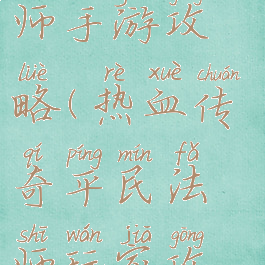 师手游攻
lüè rè xuè chuán
略(热血传
qí píng mín fǎ
奇平民法
shī wán jiā gōng
师玩家攻